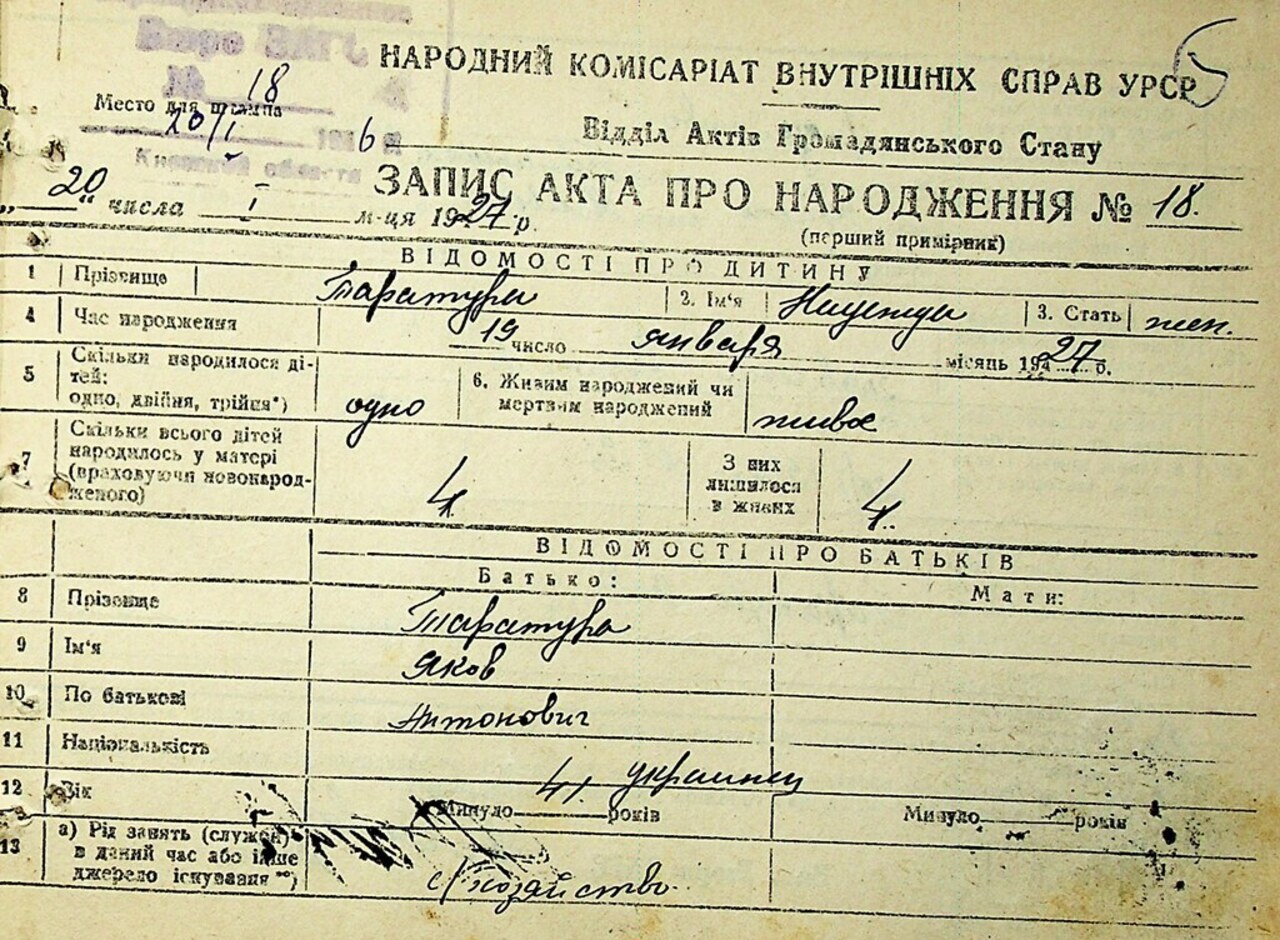 Бюро ЗАГС
№ 18
НАРОДНИЙ КОМІСАРІАТ ВНУТРІШНІХ СПРАВ УРСР
5
Место для штампа
Відділ Актів Громадянського Стану
20/I 1946
Киевской области
ЗАПИС АКТА ПРО НАРОДЖЕННЯ № 18.
„20“ числа I м-ця 1927 р.
(перший примірник)
ВІДОМОСТІ ПРО ДИТИНУ
1 Прізвище Таратура 2. Ім'я Надежда 3. Стать жен.
4 Час народження 19 число января місяць 1927 р.
5 Скільки народилося ді-
тей:
одно, двійня, трійня*) одно 6. Живим народжений чи
мертвим народжений живое
7 Скільки всього дітей
народилось у матері
(враховуючи новонарод-
женого) 4 З них
лишилося
в живих 4.
ВІДОМОСТІ ПРО БАТЬКІВ
Батько: Мати:
8 Прізвище Таратура
9 Ім'я Яков
10 По батькові Антонович
11 Національність украинец
12 Вік Минуло 41 років Минуло років
13 а) Рід занять (служби)
в даний час або інше
джерело існування **) с/хозяйство.